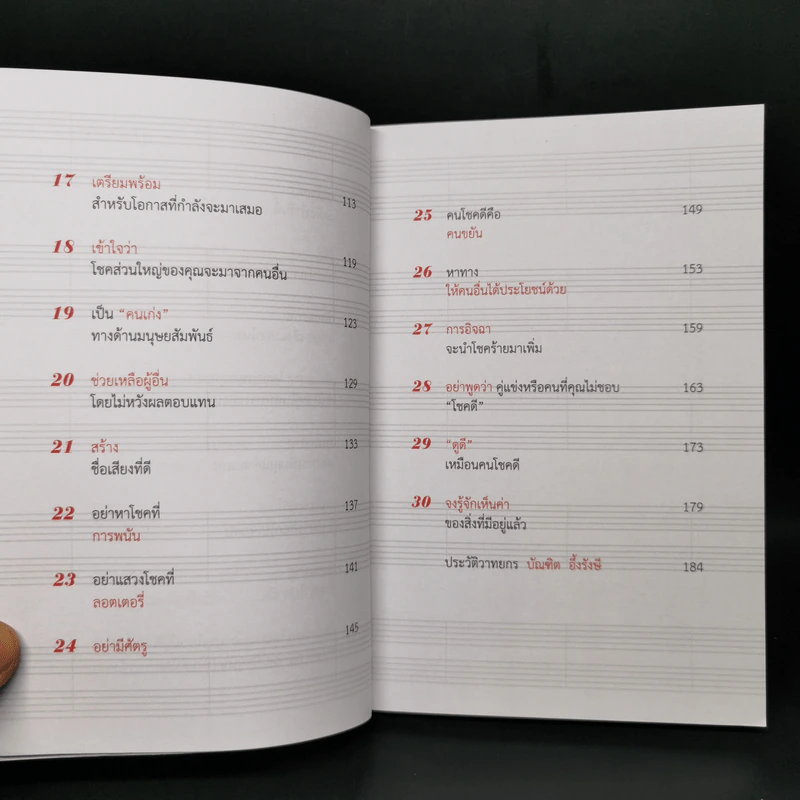 17 เตรียมพร้อม
สำหรับโอกาสที่กำลังจะมาเสมอ 113
18 เข้าใจว่า
โชคส่วนใหญ่ของคุณจะมาจากคนอื่น 119
19 เป็น “คนเก่ง”
ทางด้านมนุษยสัมพันธ์ 123
20 ช่วยเหลือผู้อื่น
โดยไม่หวังผลตอบแทน 129
21 สร้าง 133
ชื่อเสียงที่ดี
22 อย่าหาโชคที่ 137
การพนัน
23 อย่าแสวงโชคที่ 141
ลอตเตอรี่
24 อย่ามีศัตรู 145
25 คนโชคดีคือ 149
คนขยัน
26 หาทาง 153
ให้คนอื่นได้ประโยชน์ด้วย
27 การอิจฉา 159
จะนำโชคร้ายมาเพิ่ม
28 อย่าพูดว่า คู่แข่งหรือคนที่คุณไม่ชอบ 163
“โชคดี”
29 “ดูดี” 173
เหมือนคนโชคดี
30 จงรู้จักเห็นค่า 179
ของสิ่งที่มีอยู่แล้ว
ประวัติวาทยกร บัณฑิต อึ้งรังษี 184